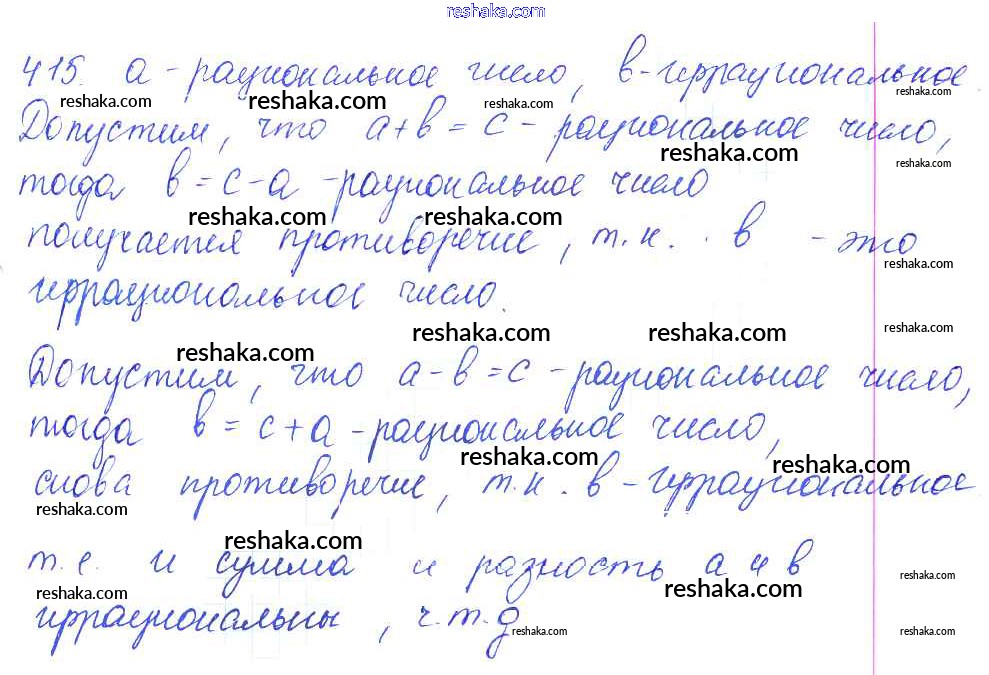 reshaka.com
415. а - рациональное число, в - иррациональное
reshaka.com reshaka.com reshaka.com reshaka.com
Допустим, что а+в = с - рациональное число,
reshaka.com reshaka.com
тогда в = с - а - рациональное число
reshaka.com reshaka.com
получается противоречие, т.к. в - это
reshaka.com
иррациональное число.
reshaka.com reshaka.com reshaka.com
reshaka.com
Допустим, что а - в = с - рациональное число,
тогда в = с + а - рациональное число,
reshaka.com reshaka.com
снова противоречие, т.к. в - иррациональное
reshaka.com
reshaka.com
т.е. и сумма и разность а и в
reshaka.com reshaka.com reshaka.com
иррациональны, ч.т.д
reshaka.com reshaka.com